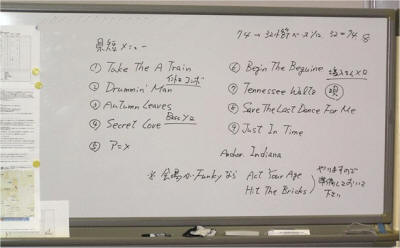 県短メニュー
① Take The A Train
② Drummin' Man
③ Autumn Leaves
④ Secret Love
Bass ソロ
⑤ アニメ
⑥ Begin The Beguine
⑦ Tennessee Waltz
⑧ Save The Last Dance For Me
⑨ Just In Time
Anchor. Indiana
※ 会場が Funky なら Act Your Age
Hit The Bricks
やりますので
準備しておいて
下さい